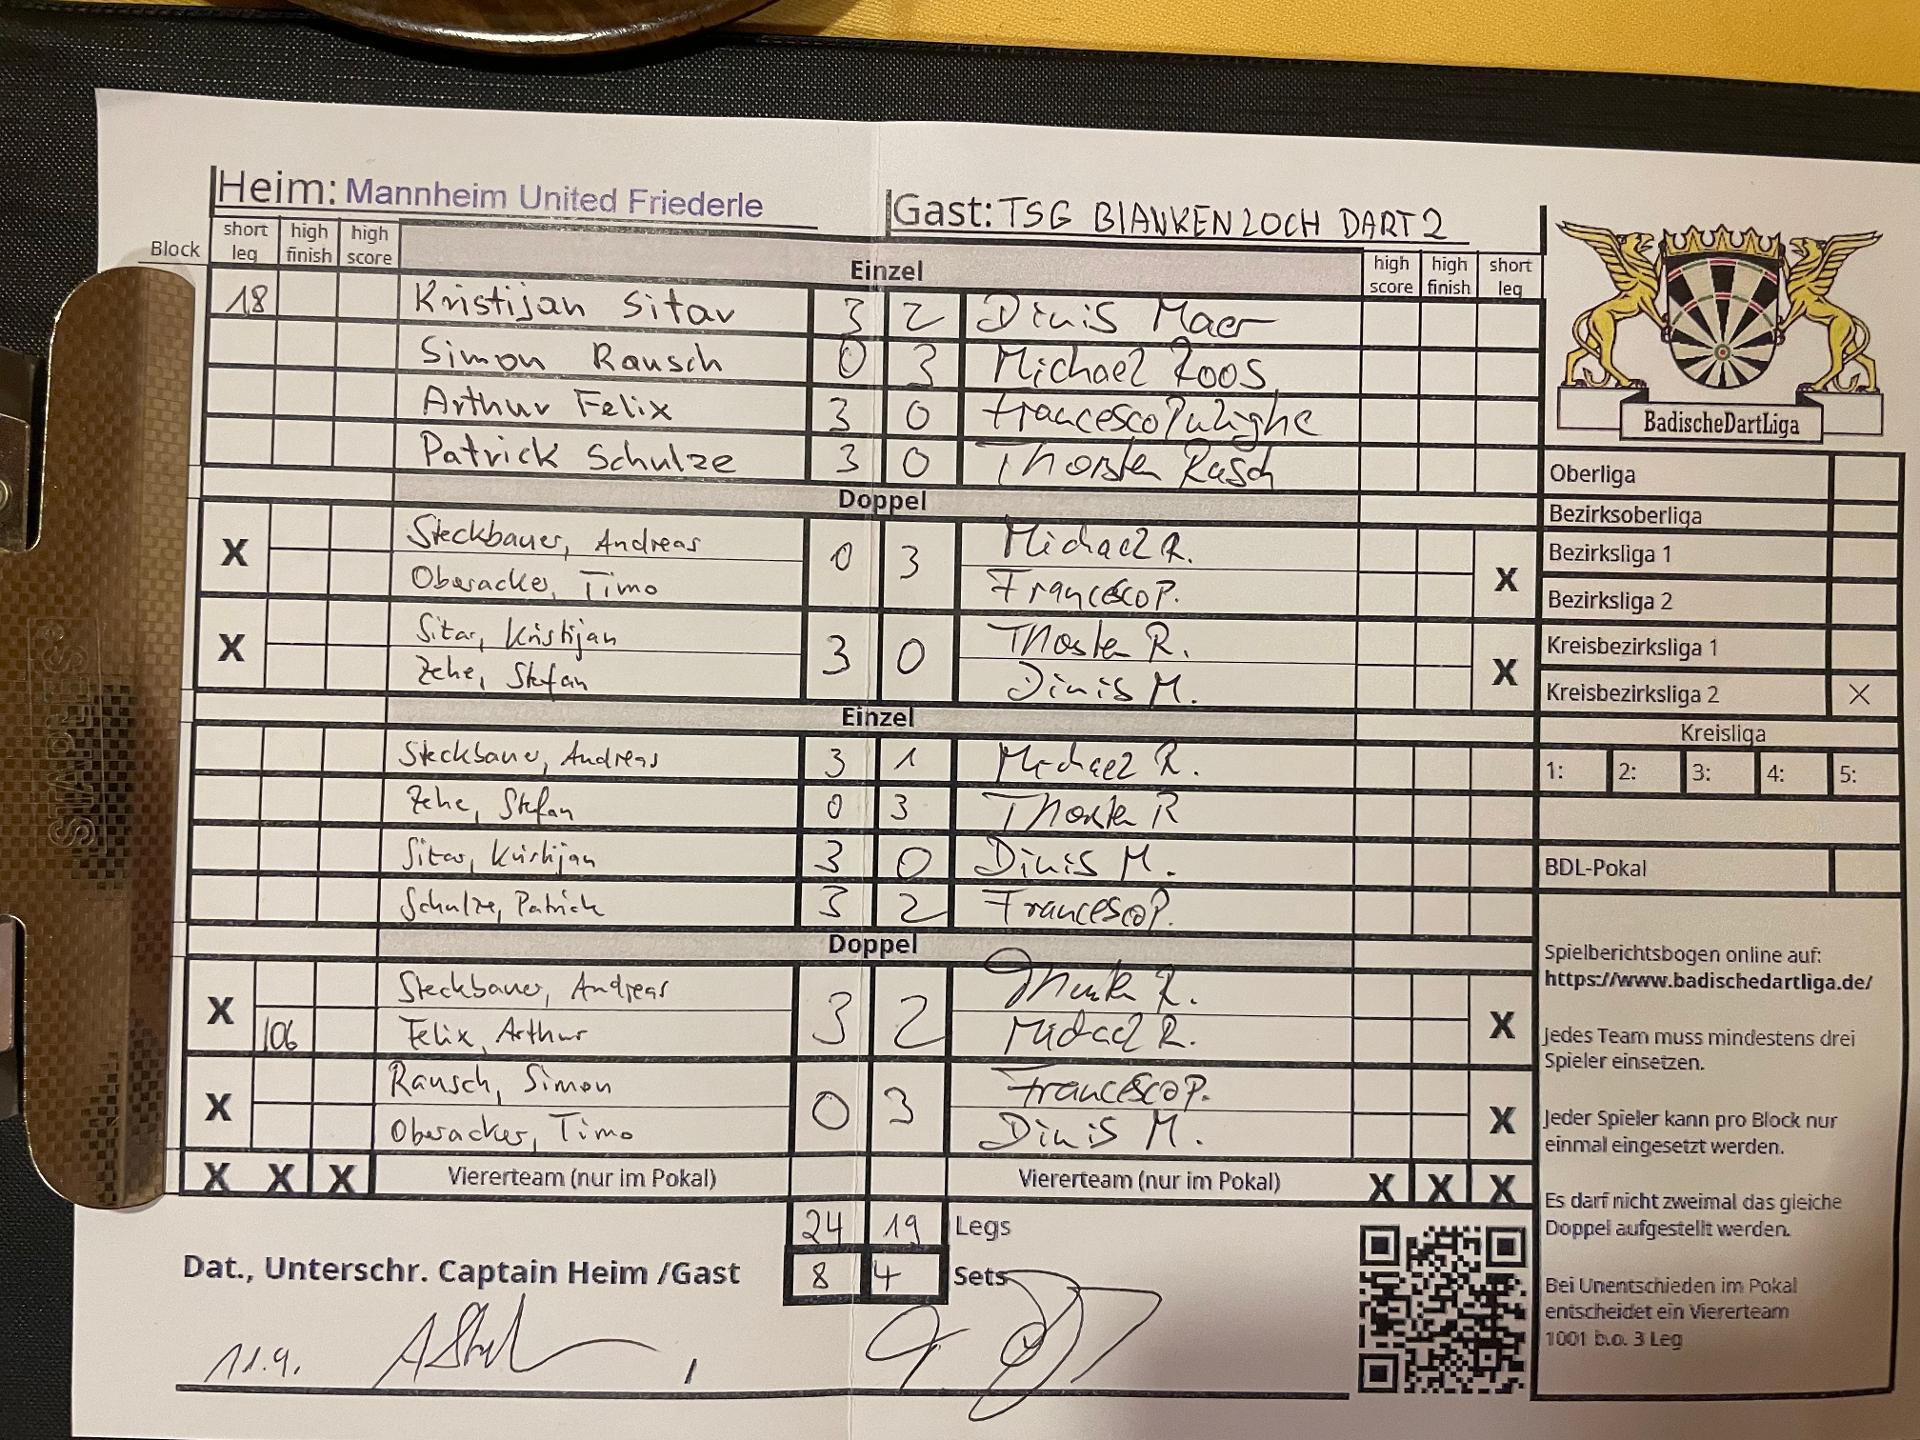 Heim: Mannheim United Friederle
Gast: TSG BlANKENLOCH DART 2
Block short leg high finish high score Einzel high score high finish short leg
18 Kristijan Sitar 3 2 Dinis Maer
Simon Rausch 0 3 Michael Roos
Arthur Felix 3 0 Francesco Pulighe
Patrick Schulze 3 0 Thorsten Rasch
Doppel
X Steckbauer, Andreas 0 3 Michael R. X
Oberacker, Timo Francesco P.
X Sitar, Kristijan 3 0 Thorsten R. X
Zehe, Stefan Dinis M.
Einzel
Steckbauer, Andreas 3 1 Michael R.
Zehe, Stefan 0 3 Thorsten R
Sitar, Kristijan 3 0 Dinis M.
Schulze, Patrick 3 2 Francesco P.
Doppel
X Steckbauer, Andreas 3 2 Thorsten R. X
106 Felix, Arthur Michael R.
X Rausch, Simon 0 3 Francesco P. X
Oberacker, Timo Dinis M.
X X X Viererteam (nur im Pokal) Viererteam (nur im Pokal) X X X
24 19 Legs
Dat., Unterschr. Captain Heim /Gast 8 4 Sets
11.9.
BadischeDartLiga
Oberliga
Bezirksoberliga
Bezirksliga 1
Bezirksliga 2
Kreisbezirksliga 1
Kreisbezirksliga 2 X
Kreisliga
1: 2: 3: 4: 5:
BDL-Pokal
Spielberichtsbogen online auf:
https://www.badischedartliga.de/
Jedes Team muss mindestens drei
Spieler einsetzen.
Jeder Spieler kann pro Block nur
einmal eingesetzt werden.
Es darf nicht zweimal das gleiche
Doppel aufgestellt werden.
Bei Unentschieden im Pokal
entscheidet ein Viererteam
1001 b.o. 3 Leg